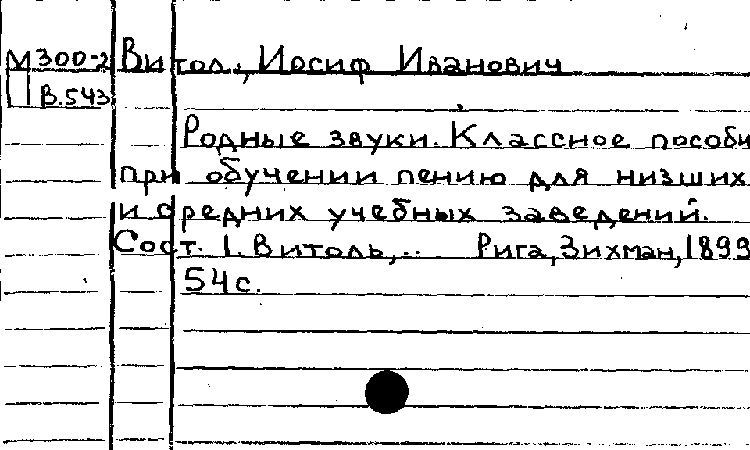 М300-2 Витол, Иосиф Иванович
В.543
Родные звуки. Классное пособи
при обучении пению для низших
и средних учебных заведений.
Сост. I. Витоль,.. Рига, Зихман, 1899
54с.